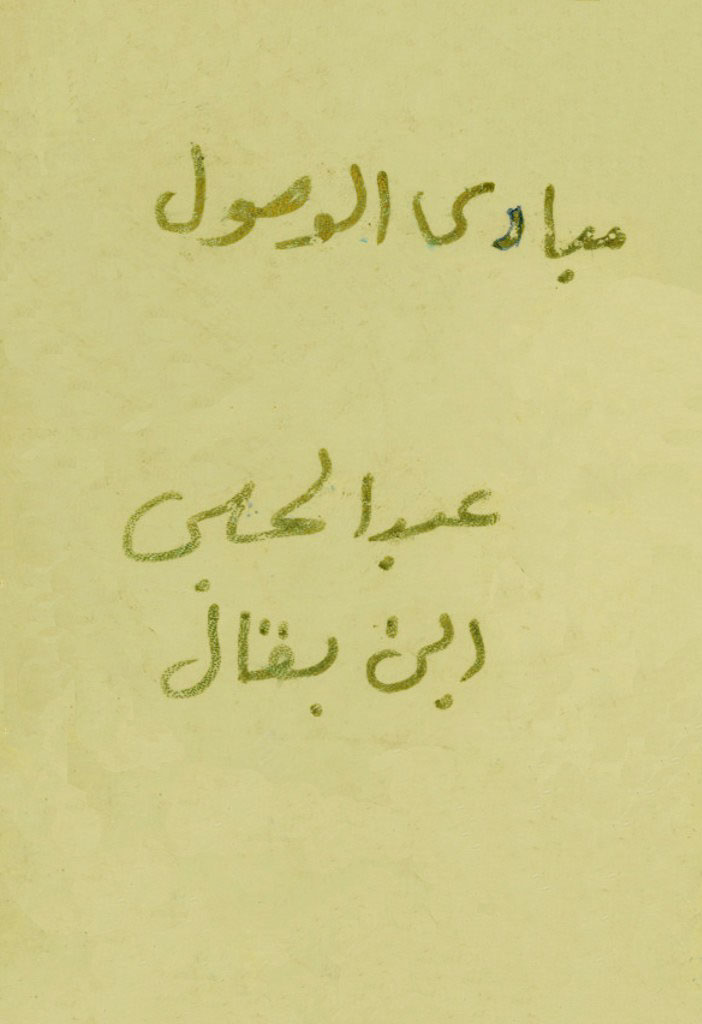 مبادى الوصول
عبد الحلبي
ابن بقال